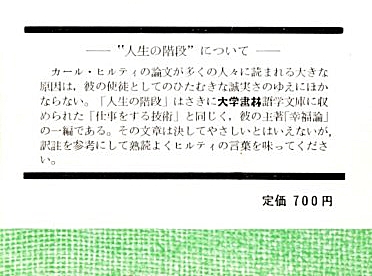 ── "人生の階段" について ──
カール・ヒルティの論文が多くの人々に読まれる大きな
原因は、彼の使徒としてのひたむきな誠実さのゆえにほか
ならない。「人生の階段」はさきに大学書林語学文庫に収
められた「仕事をする技術」と同じく，彼の主著「幸福論」
の一編である。その文章は決してやさしいとはいえないが，
訳註を参考にして熟読よくヒルティの言葉を味ってくださ
い。
定価 700円